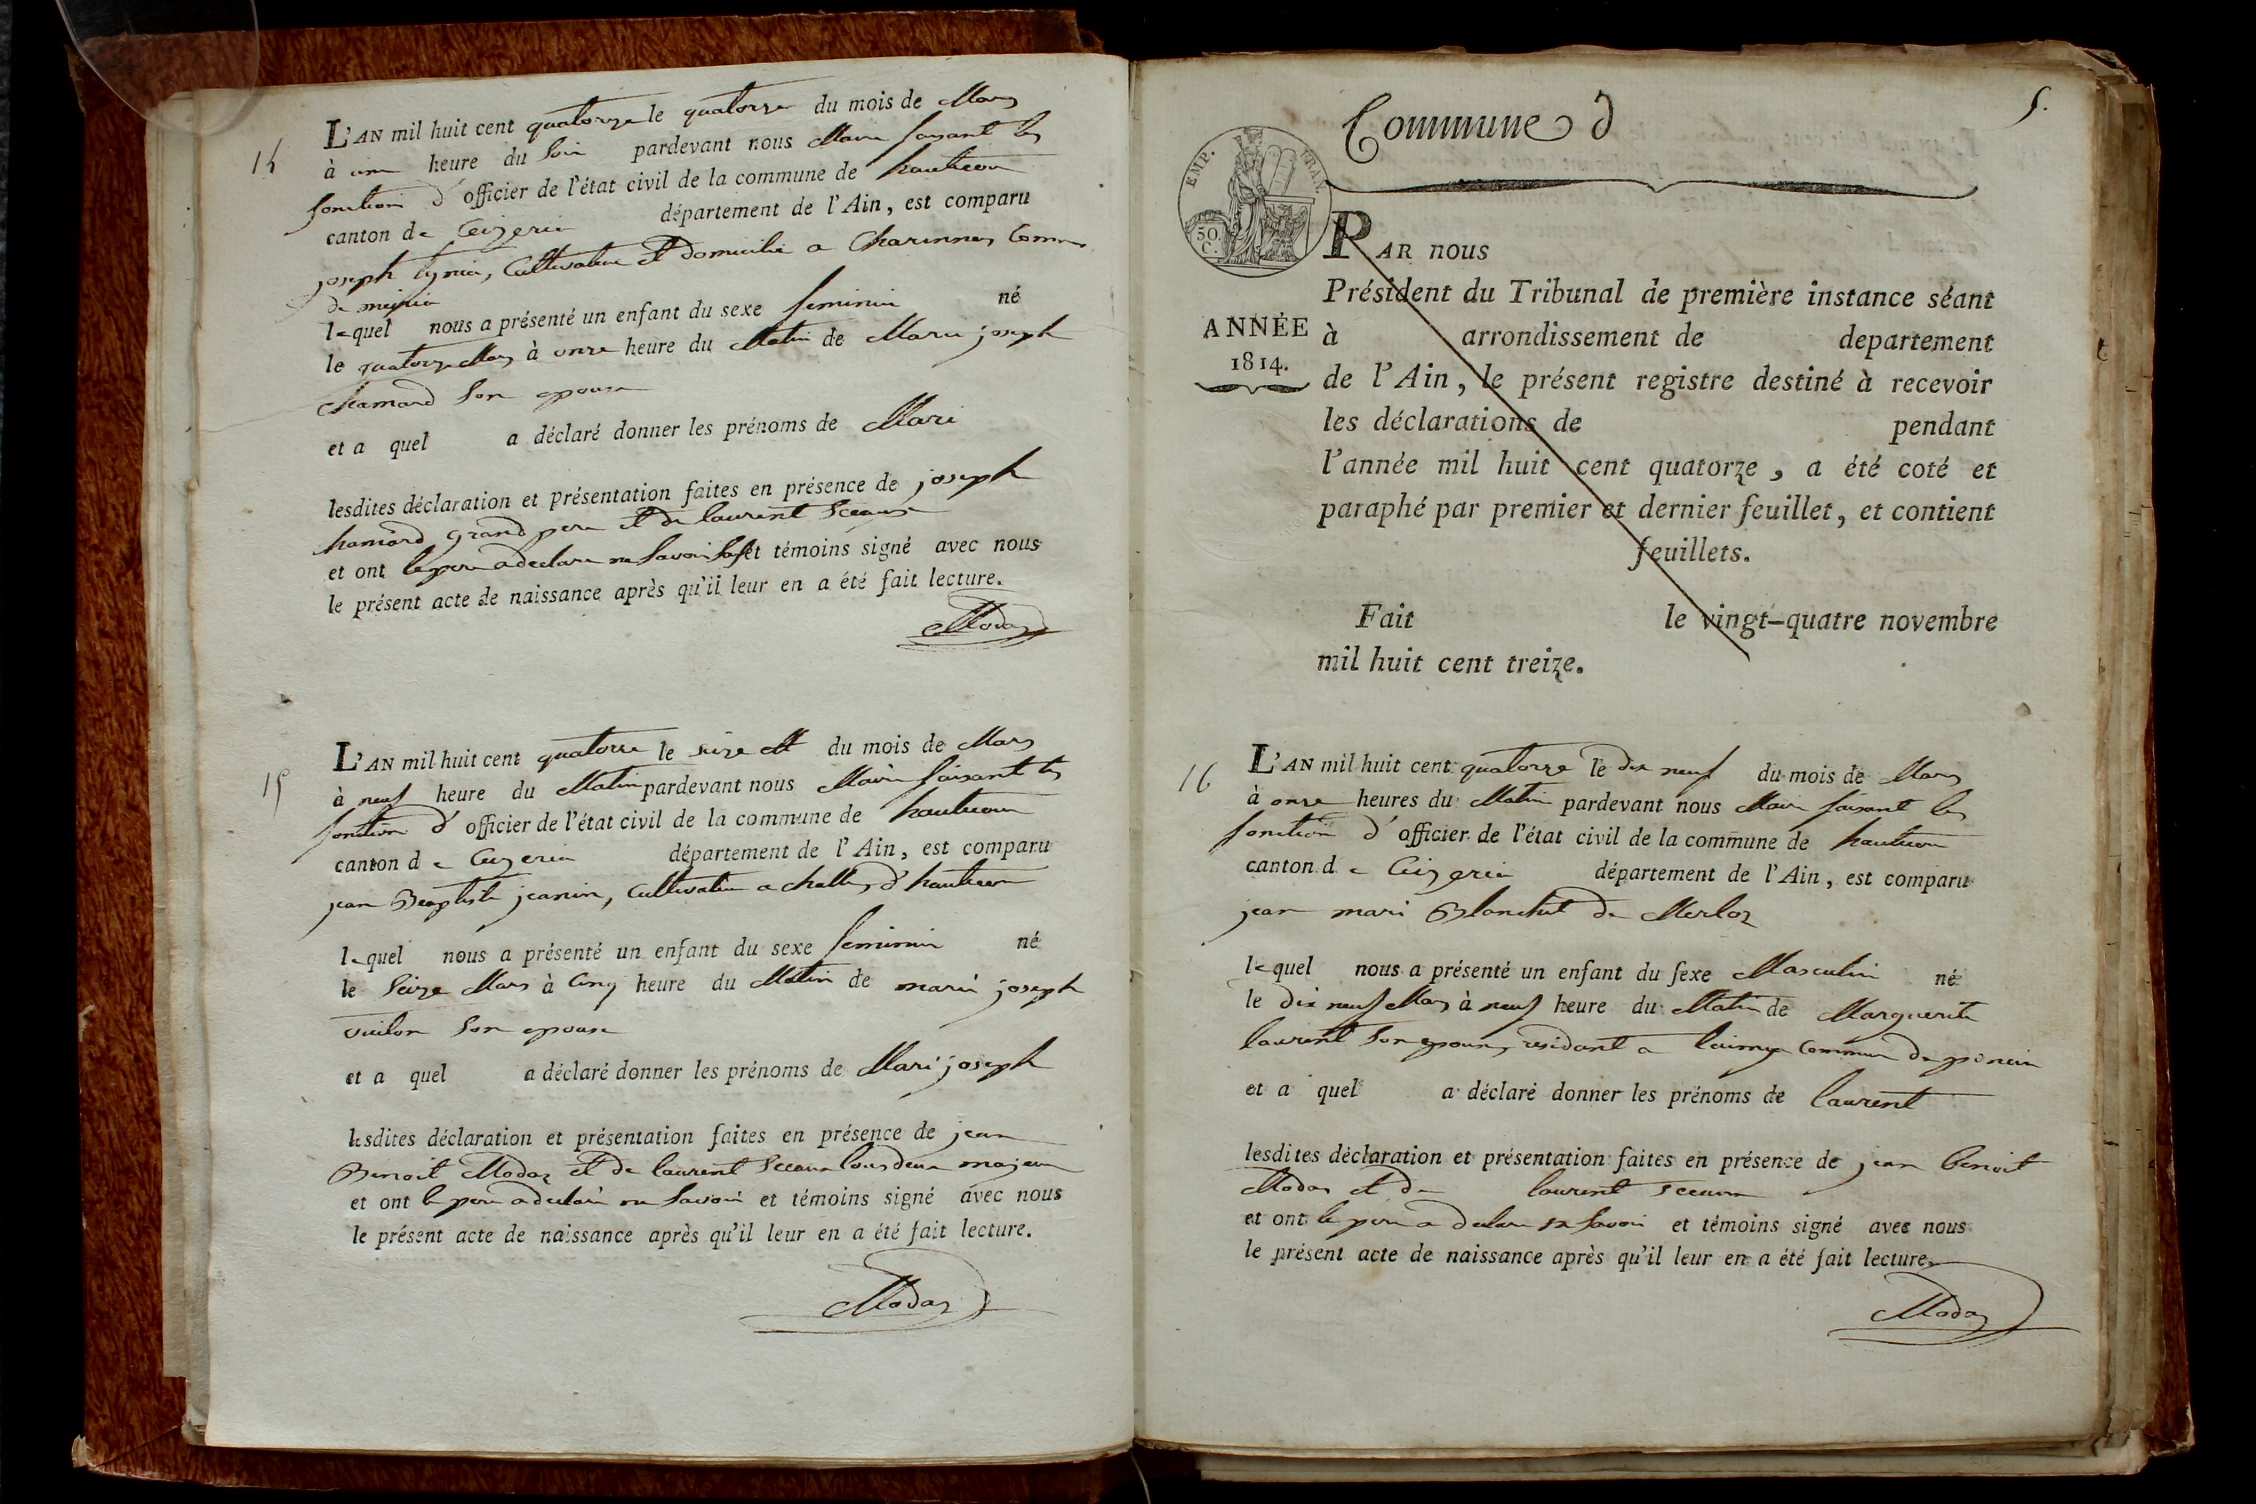 14
L'AN mil huit cent quatorze le quatorze du mois de Mars
à une heure du soir pardevant nous Maire faisant les
fonction d'officier de l'état civil de la commune de hautecour
canton de Ceizeria département de l'Ain, est comparu
joseph, Cultivateur et domicilié a Charinnas Commune
de
lequel nous a présenté un enfant du sexe feminin né
le quatorze Mars à onze heure du Matin de Marie joseph
chamard son epouse
et a quel a déclaré donner les prénoms de Marie
lesdites déclaration et présentation faites en présence de joseph
hamard grand pere et de laurent
et ont le pere a declare ne savoir et témoins signé avec nous
le présent acte de naissance après qu'il leur en a été fait lecture.
Modas
15
L'AN mil huit cent quatorze le seize du mois de Mars
à neuf heure du Matin pardevant nous Maire faisant les
fonction d'officier de l'état civil de la commune de hautecour
canton de Ceizeria département de l'Ain, est comparu
jean Baptiste jeanin, Cultivateur a challes d'hautecour
lequel nous a présenté un enfant du sexe feminin né
le Seize Mars à Cinq heure du Matin de marie joseph
vuilon son epouse
et a quel a déclaré donner les prénoms de Mari joseph
lesdites déclaration et présentation faites en présence de jean
Benoit Modas et de laurent tous deux majeur
et ont le pere a declaré ne savoir et témoins signé avec nous
le présent acte de naissance après qu'il leur en a été fait lecture.
Modas
5.
Commune d
EMP. FRAN.
50.
C.
PAR nous
Président du Tribunal de première instance séant
ANNÉE
1814.
à arrondissement de departement
de l'Ain, le présent registre destiné à recevoir
les déclarations de pendant
l'année mil huit cent quatorze, a été coté et
paraphé par premier et dernier feuillet, et contient
feuillets.
Fait le vingt-quatre novembre
mil huit cent treize.
16
L'AN mil huit cent quatorze le dix neuf du mois de Mars
à onze heures du Matin pardevant nous Maire faisant les
fonction d'officier de l'état civil de la commune de hautecour
canton de Ceizeria département de l'Ain, est comparu
jean mari Blanchet de Merloz
lequel nous a présenté un enfant du sexe Masculin né
le dix neuf Mars à neuf heure du Matin de Marguerite
laurent son epouse, residant a Commune de poncin
et a quel a déclaré donner les prénoms de laurent
lesdites déclaration et présentation faites en présence de jean benoit
Modas et de laurent
et ont le pere a declare ne savoir et témoins signé avec nous
le présent acte de naissance après qu'il leur en a été fait lecture.
Modas